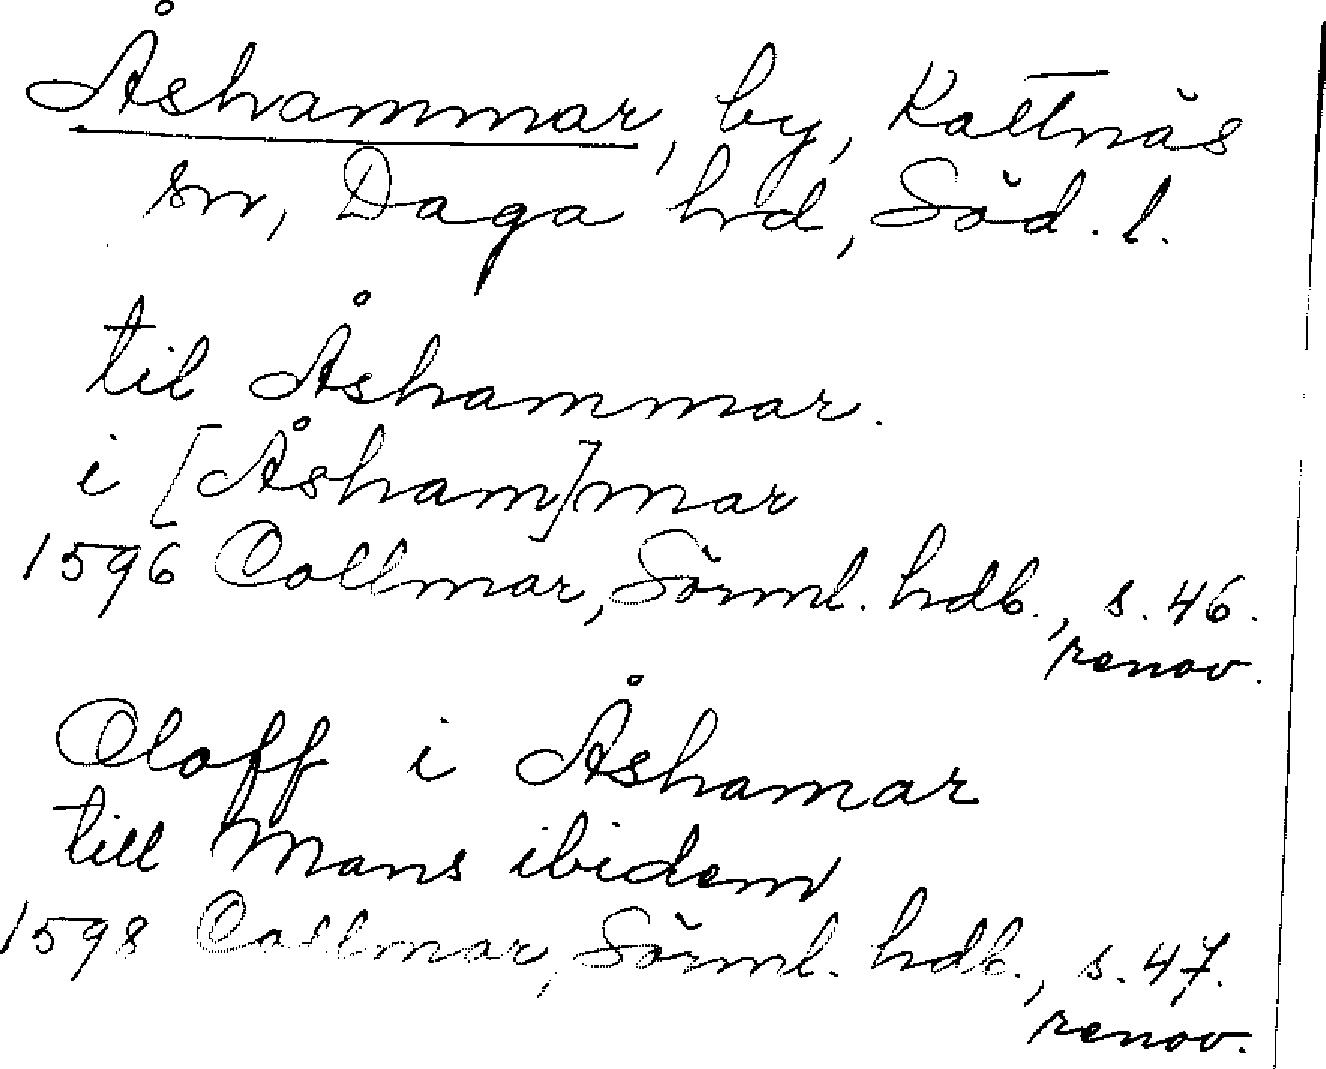 Åshammar, by, Kattnäs
sn, Daga hd, Söd. l.
til Åshammar.
i [Åsham]mar
1596 Collmar, Sörml. hdb., s. 46.
renov.
Oloff i Åshamar
till Mans ibidem
1598 Collmar, Sörml. hdb., s. 47.
renov.